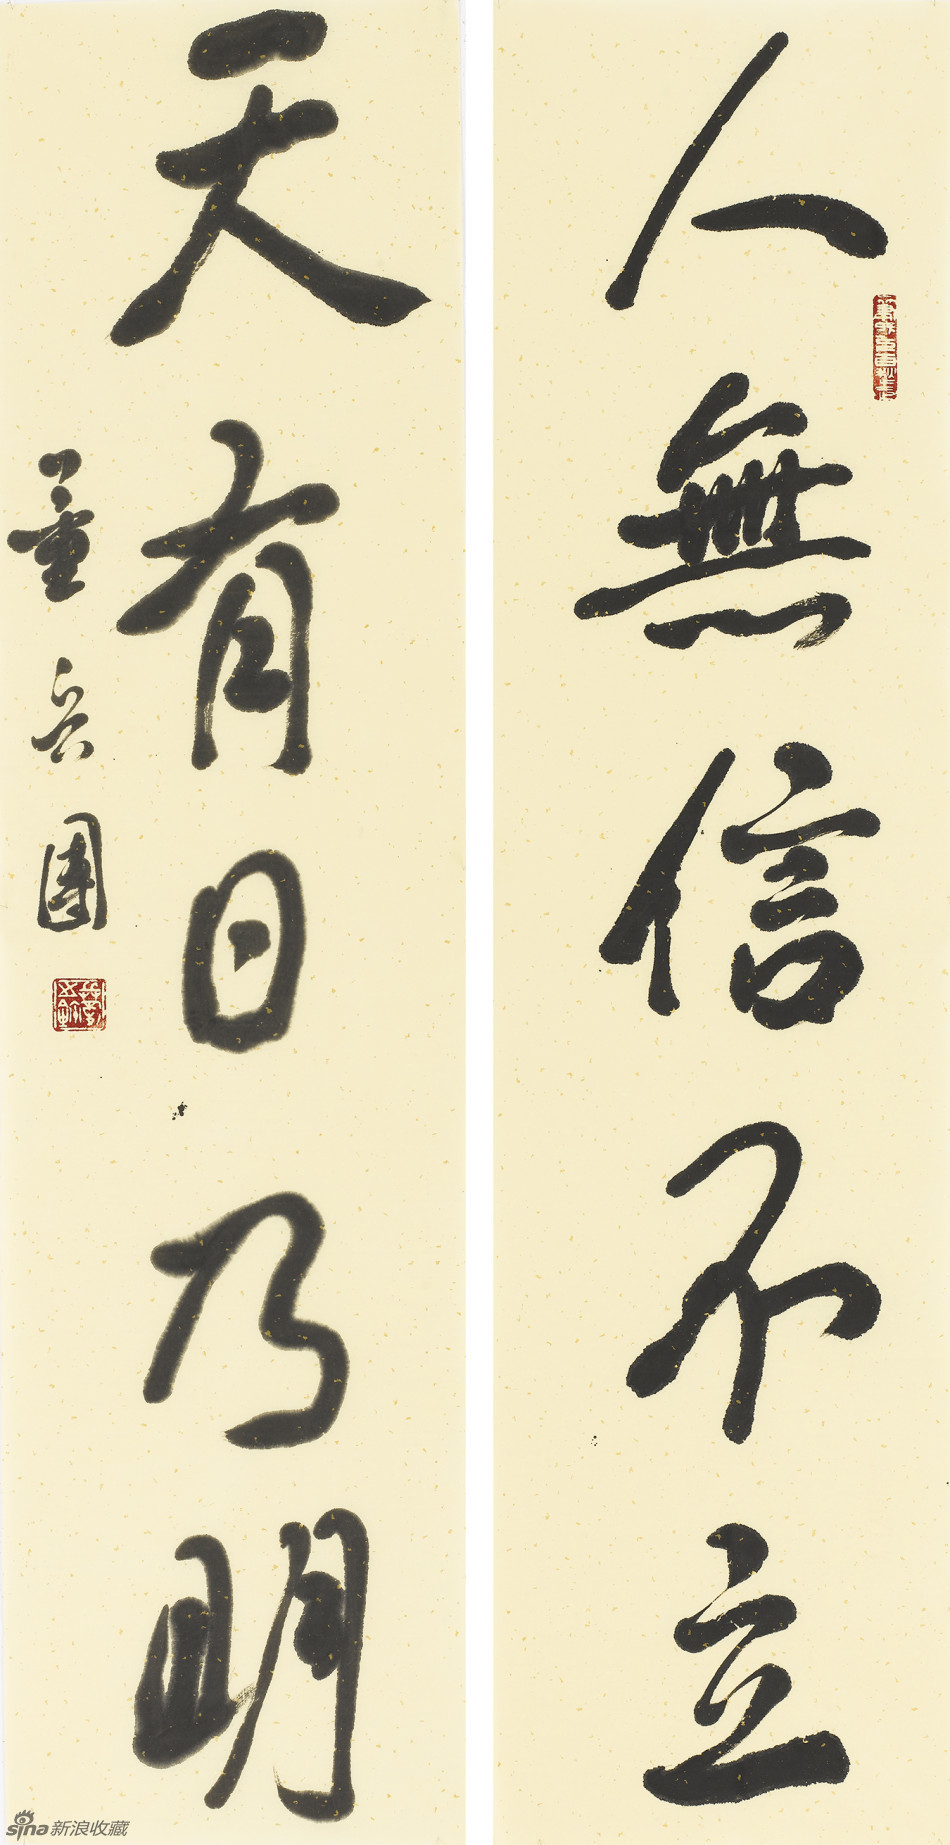 人無信不立
天有日乃明
sina新浪收藏